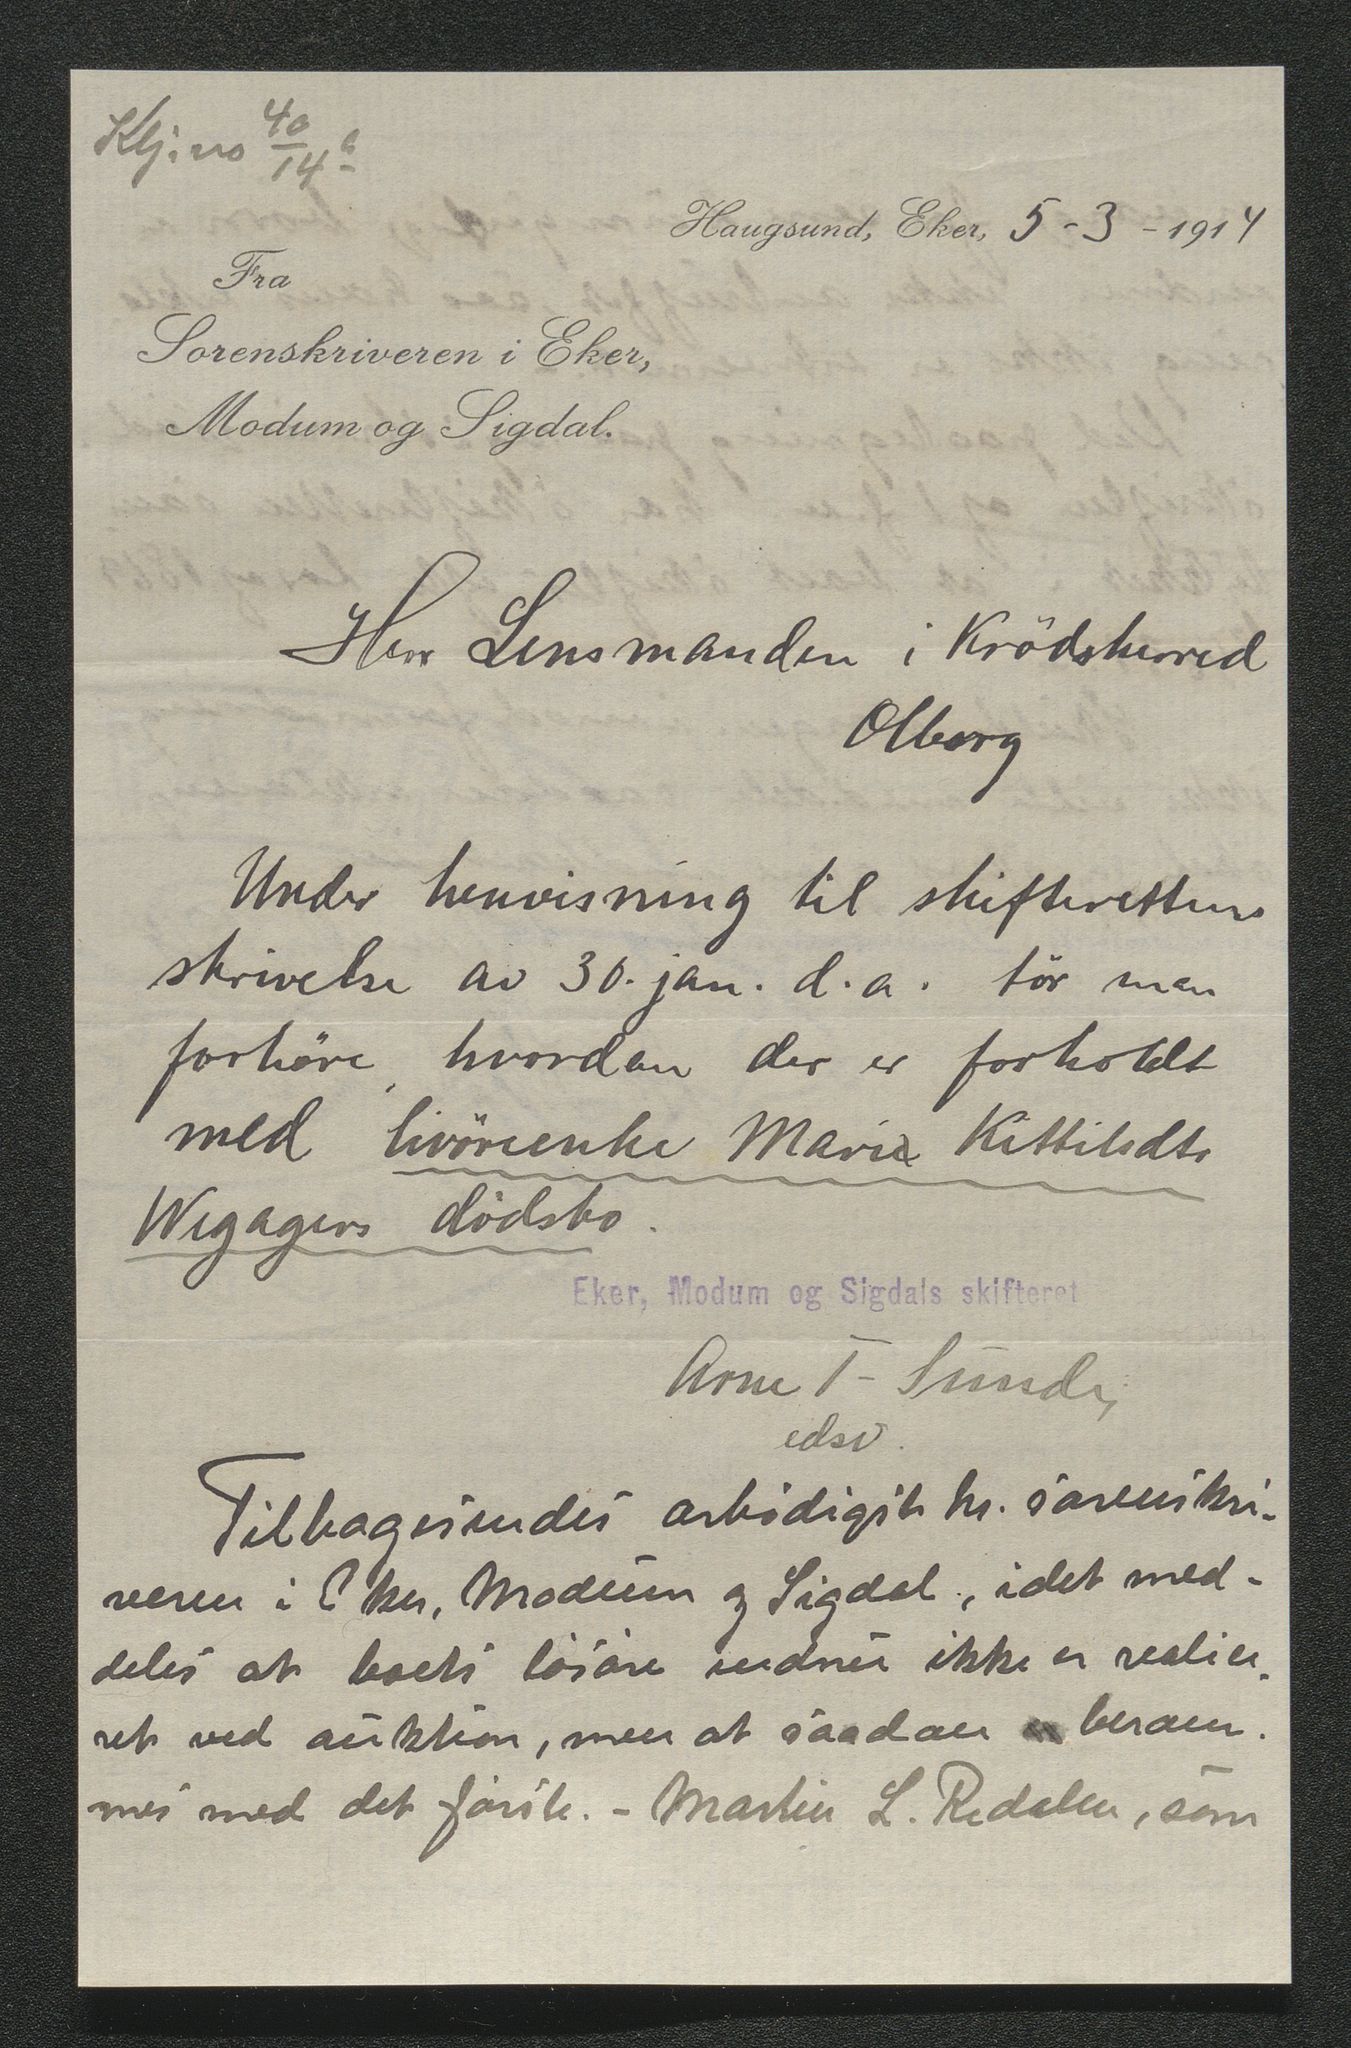 Klj: no 40/14 b
Haugsund, Eker, 5-3-1914
Fra
Sorenskriveren i Eker,
Modum og Sigdal.
Herr Lensmanden i Krödsherred
Olberg
Under henvisning til skifterettens
skrivelse av 30. jan. d.a. tör man
forhöre, hvordan der er forholdt
med livöreenke Marie Kittilsdts
Wegagers dödsbo.
Eker, Modum og Sigdals skifteret
Arne T- Sunde,
edsv.
Tilbagesendes ærbødigst hr. sorenskri-
veren i Eker, Modum og Sigdal, idet med-
deles at boets løsøre endnu ikke er realise-
ret ved auktion, men at saadan beram-
mes med det første. - Martin L. Redalen, som